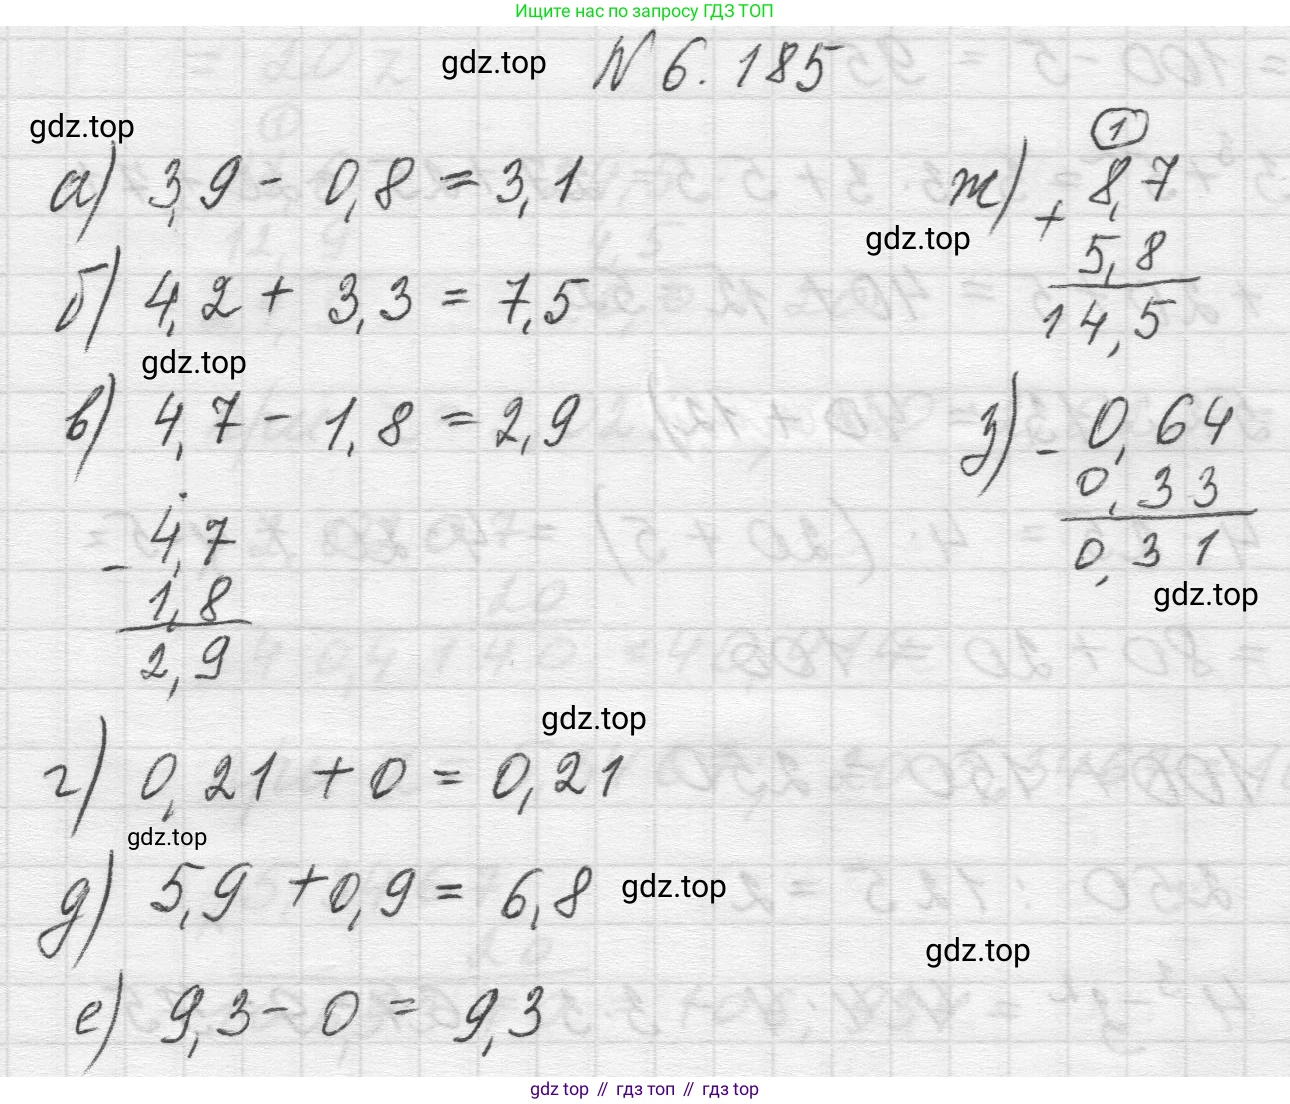 Ищите нас по запросу ГДЗ ТОП
gdz.top
N 6. 185
gdz.top
а) 3,9 - 0,8 = 3,1
б) 4,2 + 3,3 = 7,5
gdz.top
в) 4,7 - 1,8 = 2,9
4,7
- 1,8
2,9
gdz.top
г) 0,21 + 0 = 0,21
gdz.top
д) 5,9 + 0,9 = 6,8
gdz.top
е) 9,3 - 0 = 9,3
1
ж) + 8,7
gdz.top
5,8
14,5
з) - 0,64
0,33
0,31
gdz.top
gdz.top
gdz top // гдз топ // гдз top